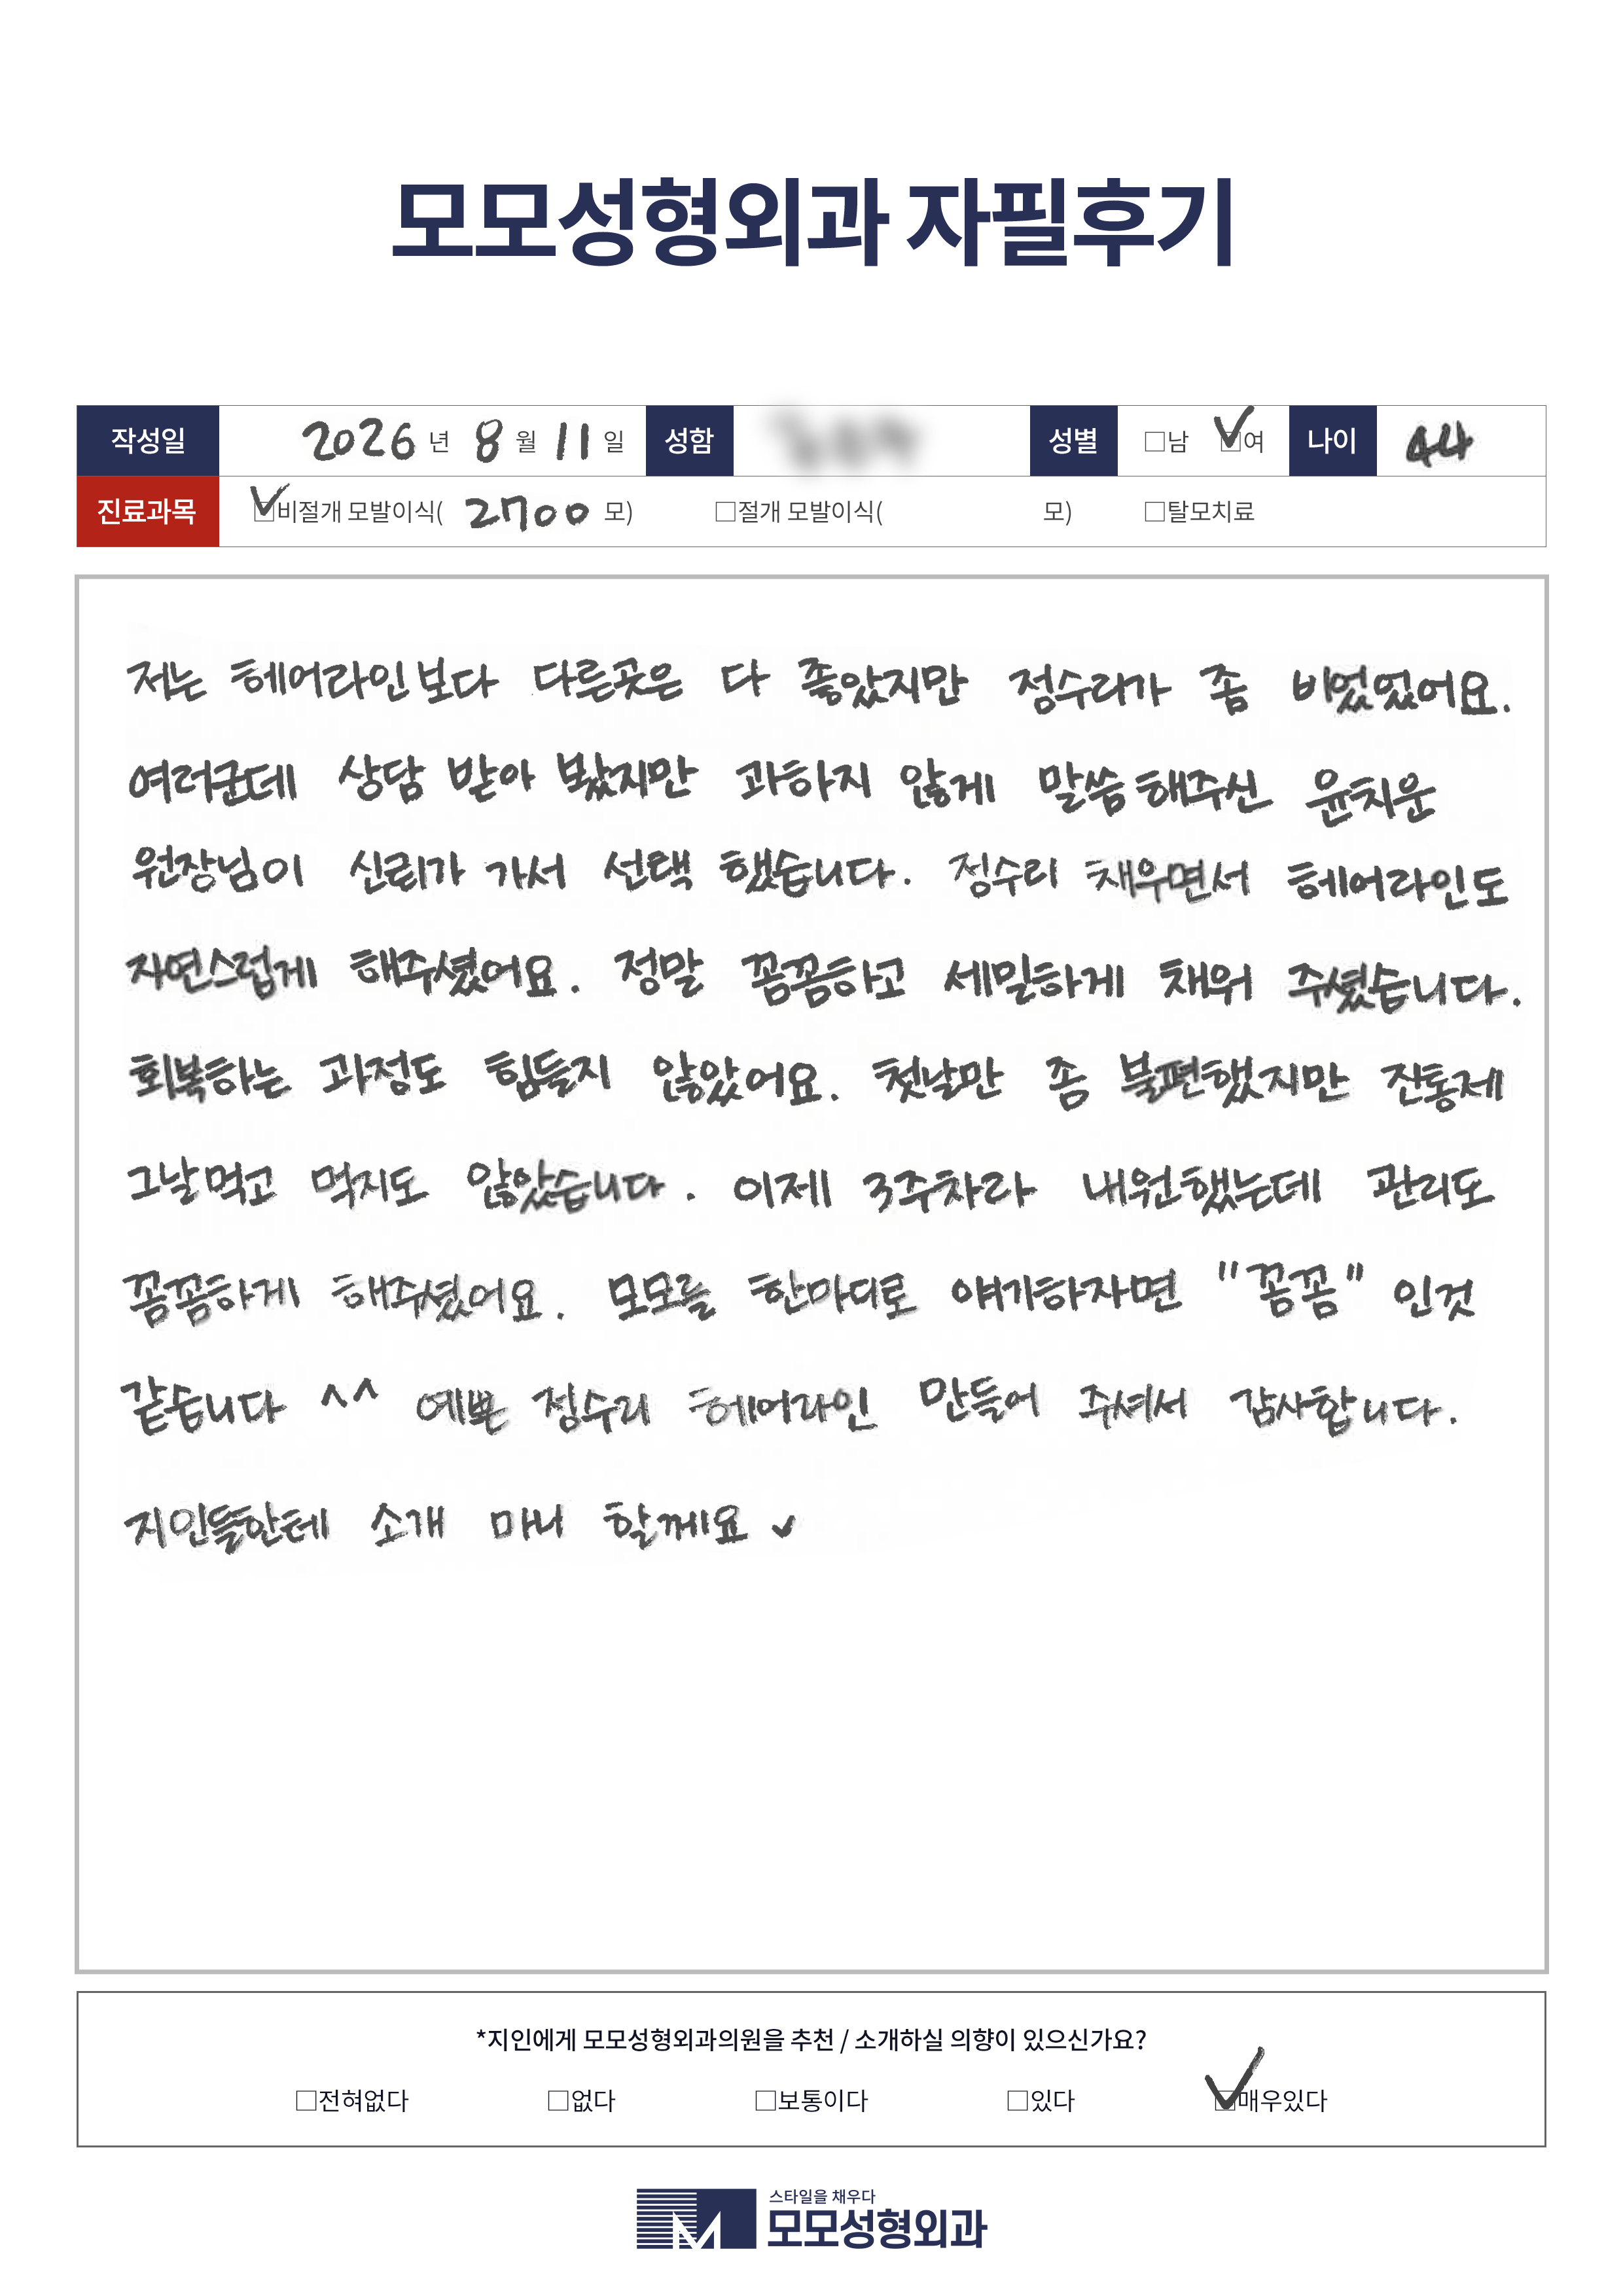 모모성형외과 자필후기
작성일 2026 년 8 월 11 일 성함 성별 □남 □여 나이 44
진료과목 □비절개 모발이식( 2700 모) □절개 모발이식( 모) □탈모치료
저는 헤어라인보다 다른곳은 다 좋았지만 정수리가 좀 비었었어요.
여러군데 상담 받아 봤지만 과하지 않게 말씀해주신 윤치운
원장님이 신뢰가 가서 선택 했습니다. 정수리 채우면서 헤어라인도
자연스럽게 해주셨어요. 정말 꼼꼼하고 세밀하게 채워 주셨습니다.
회복하는 과정도 힘들지 않았어요. 첫날만 좀 불편했지만 진통제
그날먹고 먹지도 않았습니다. 이제 3주차라 내원했는데 관리도
꼼꼼하게 해주셨어요. 모모를 한마디로 얘기하자면 "꼼꼼" 인것
같습니다 ^^ 예쁜 정수리 헤어라인 만들어 주셔서 감사합니다.
지인들한테 소개 마니 할께요
*지인에게 모모성형외과의원을 추천 / 소개하실 의향이 있으신가요?
□전혀없다 □없다 □보통이다 □있다 □매우있다
스타일을 채우다
모모성형외과